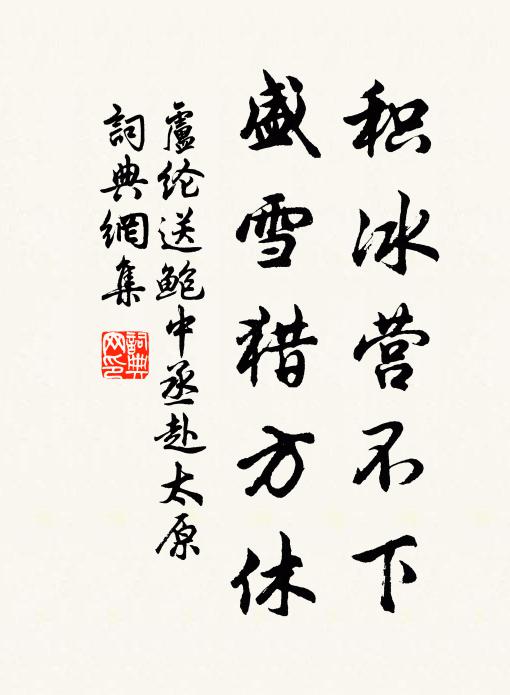 积冰营不下
盛雪猎方休
盧纶送鲍中丞赴太原
詞典網集
詞典
网印